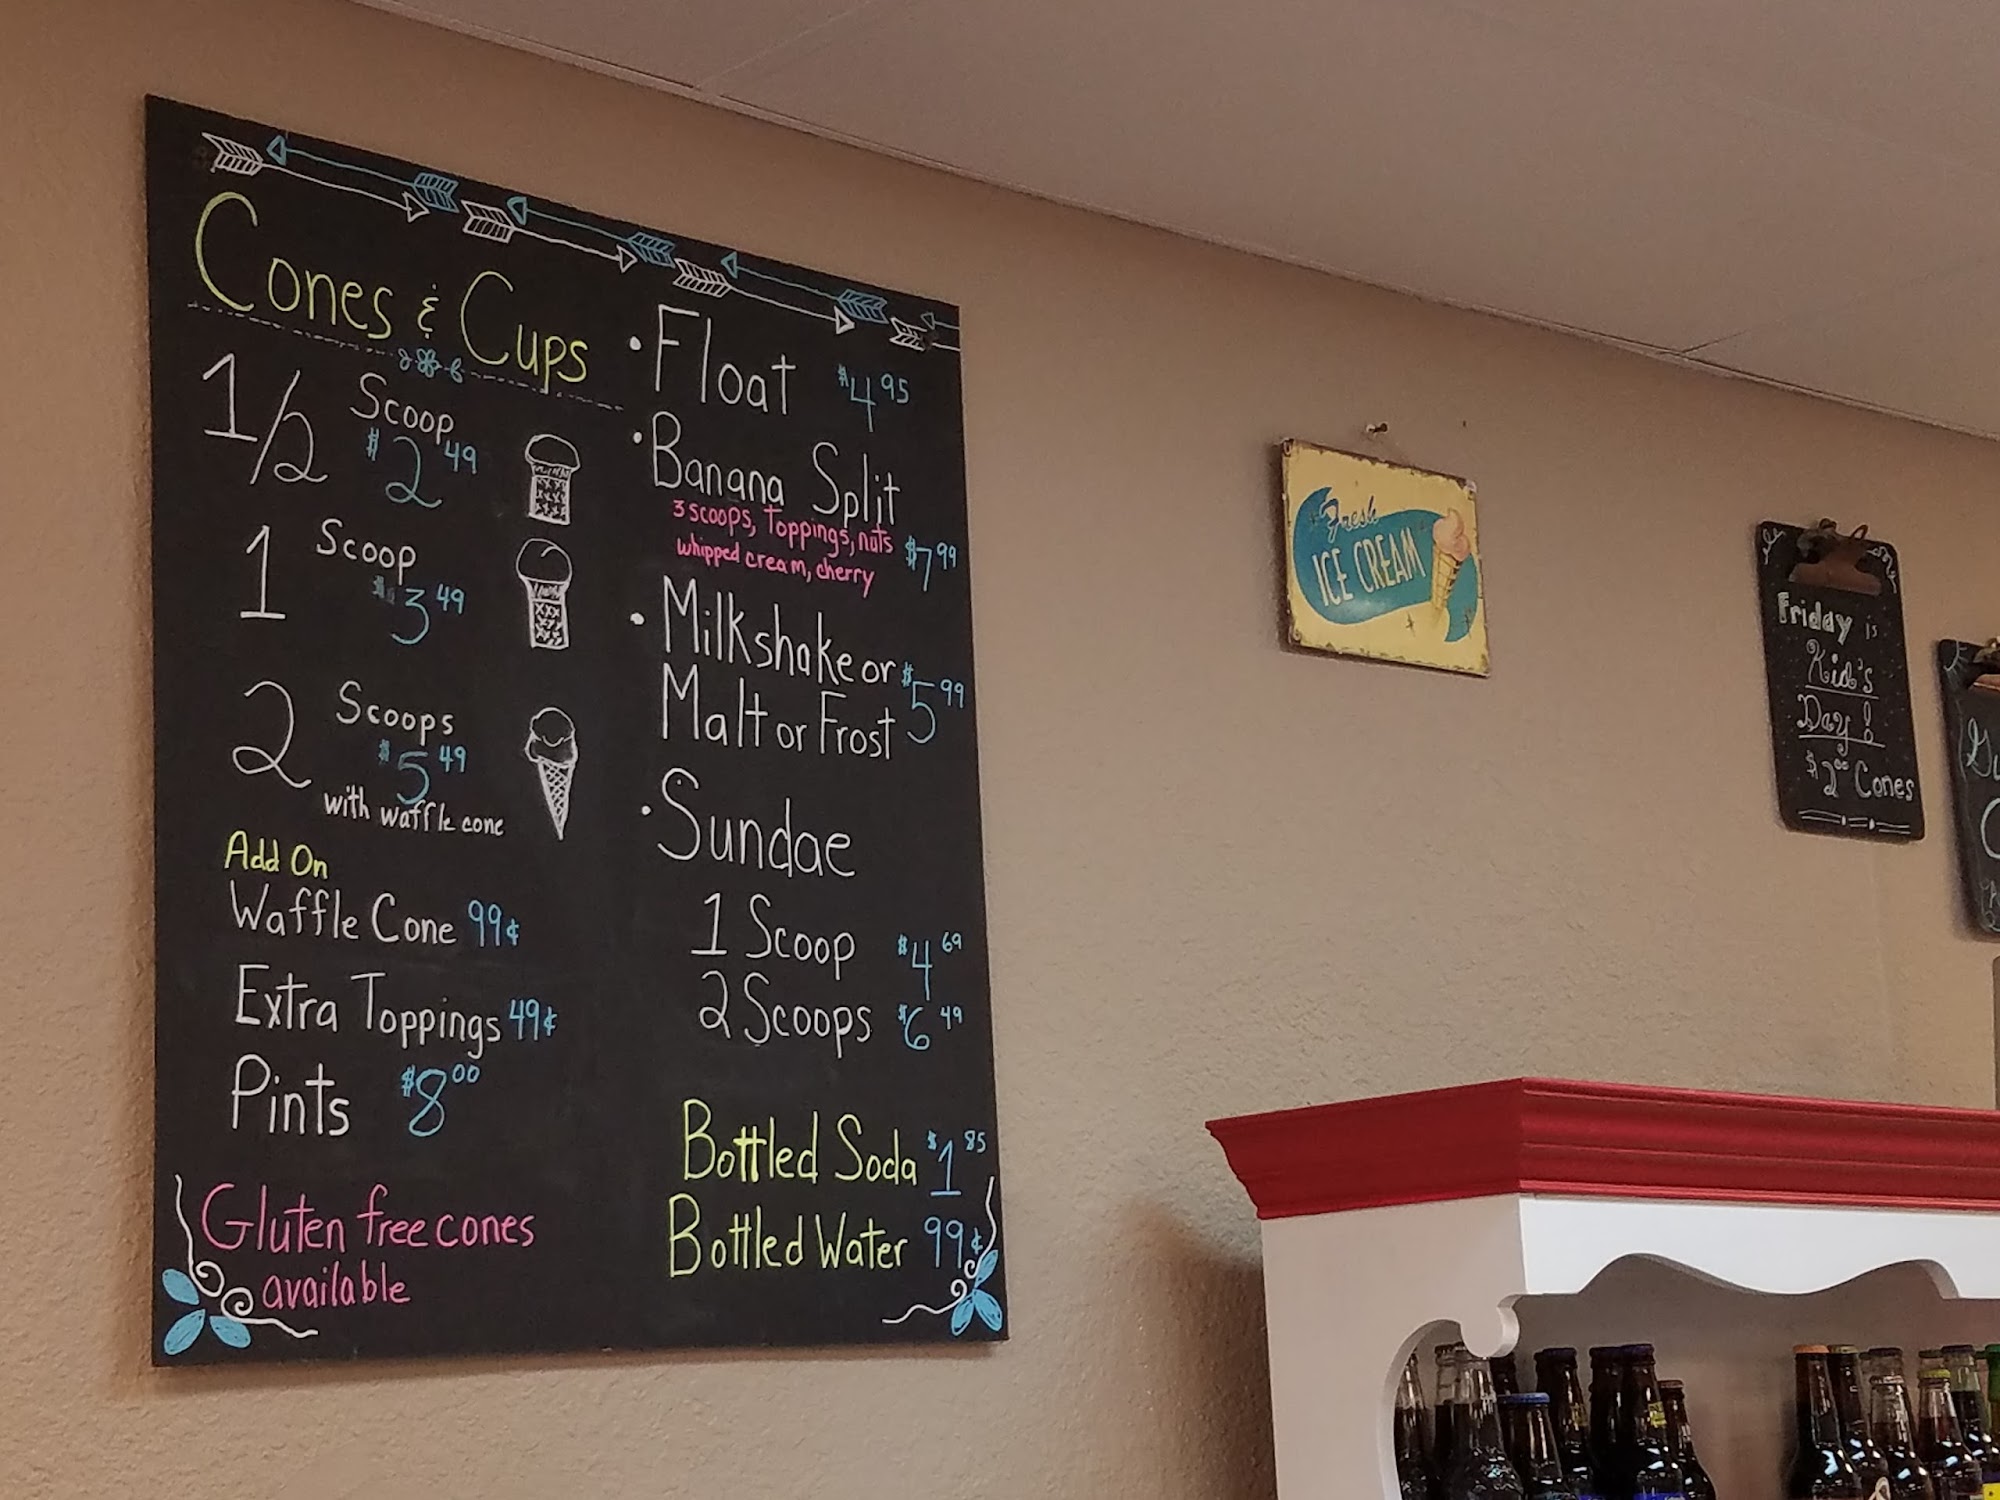 Cones & Cups
1/2 Scoop
$2.49
1 Scoop
$3.49
2 Scoops
$5.49
with waffle cone
Add On
Waffle Cone 99¢
Extra Toppings 49¢
Pints $8.00
Gluten free cones
available
• Float $4.95
• Banana Split
3 scoops, Toppings, nuts
whipped cream, cherry $7.99
• Milkshake or
Malt or Frost $5.99
• Sundae
1 Scoop $4.69
2 Scoops $6.49
Bottled Soda $1.85
Bottled Water 99¢
Fresh
ICE CREAM
Friday is
Kid's
Day!
$2.00 Cones